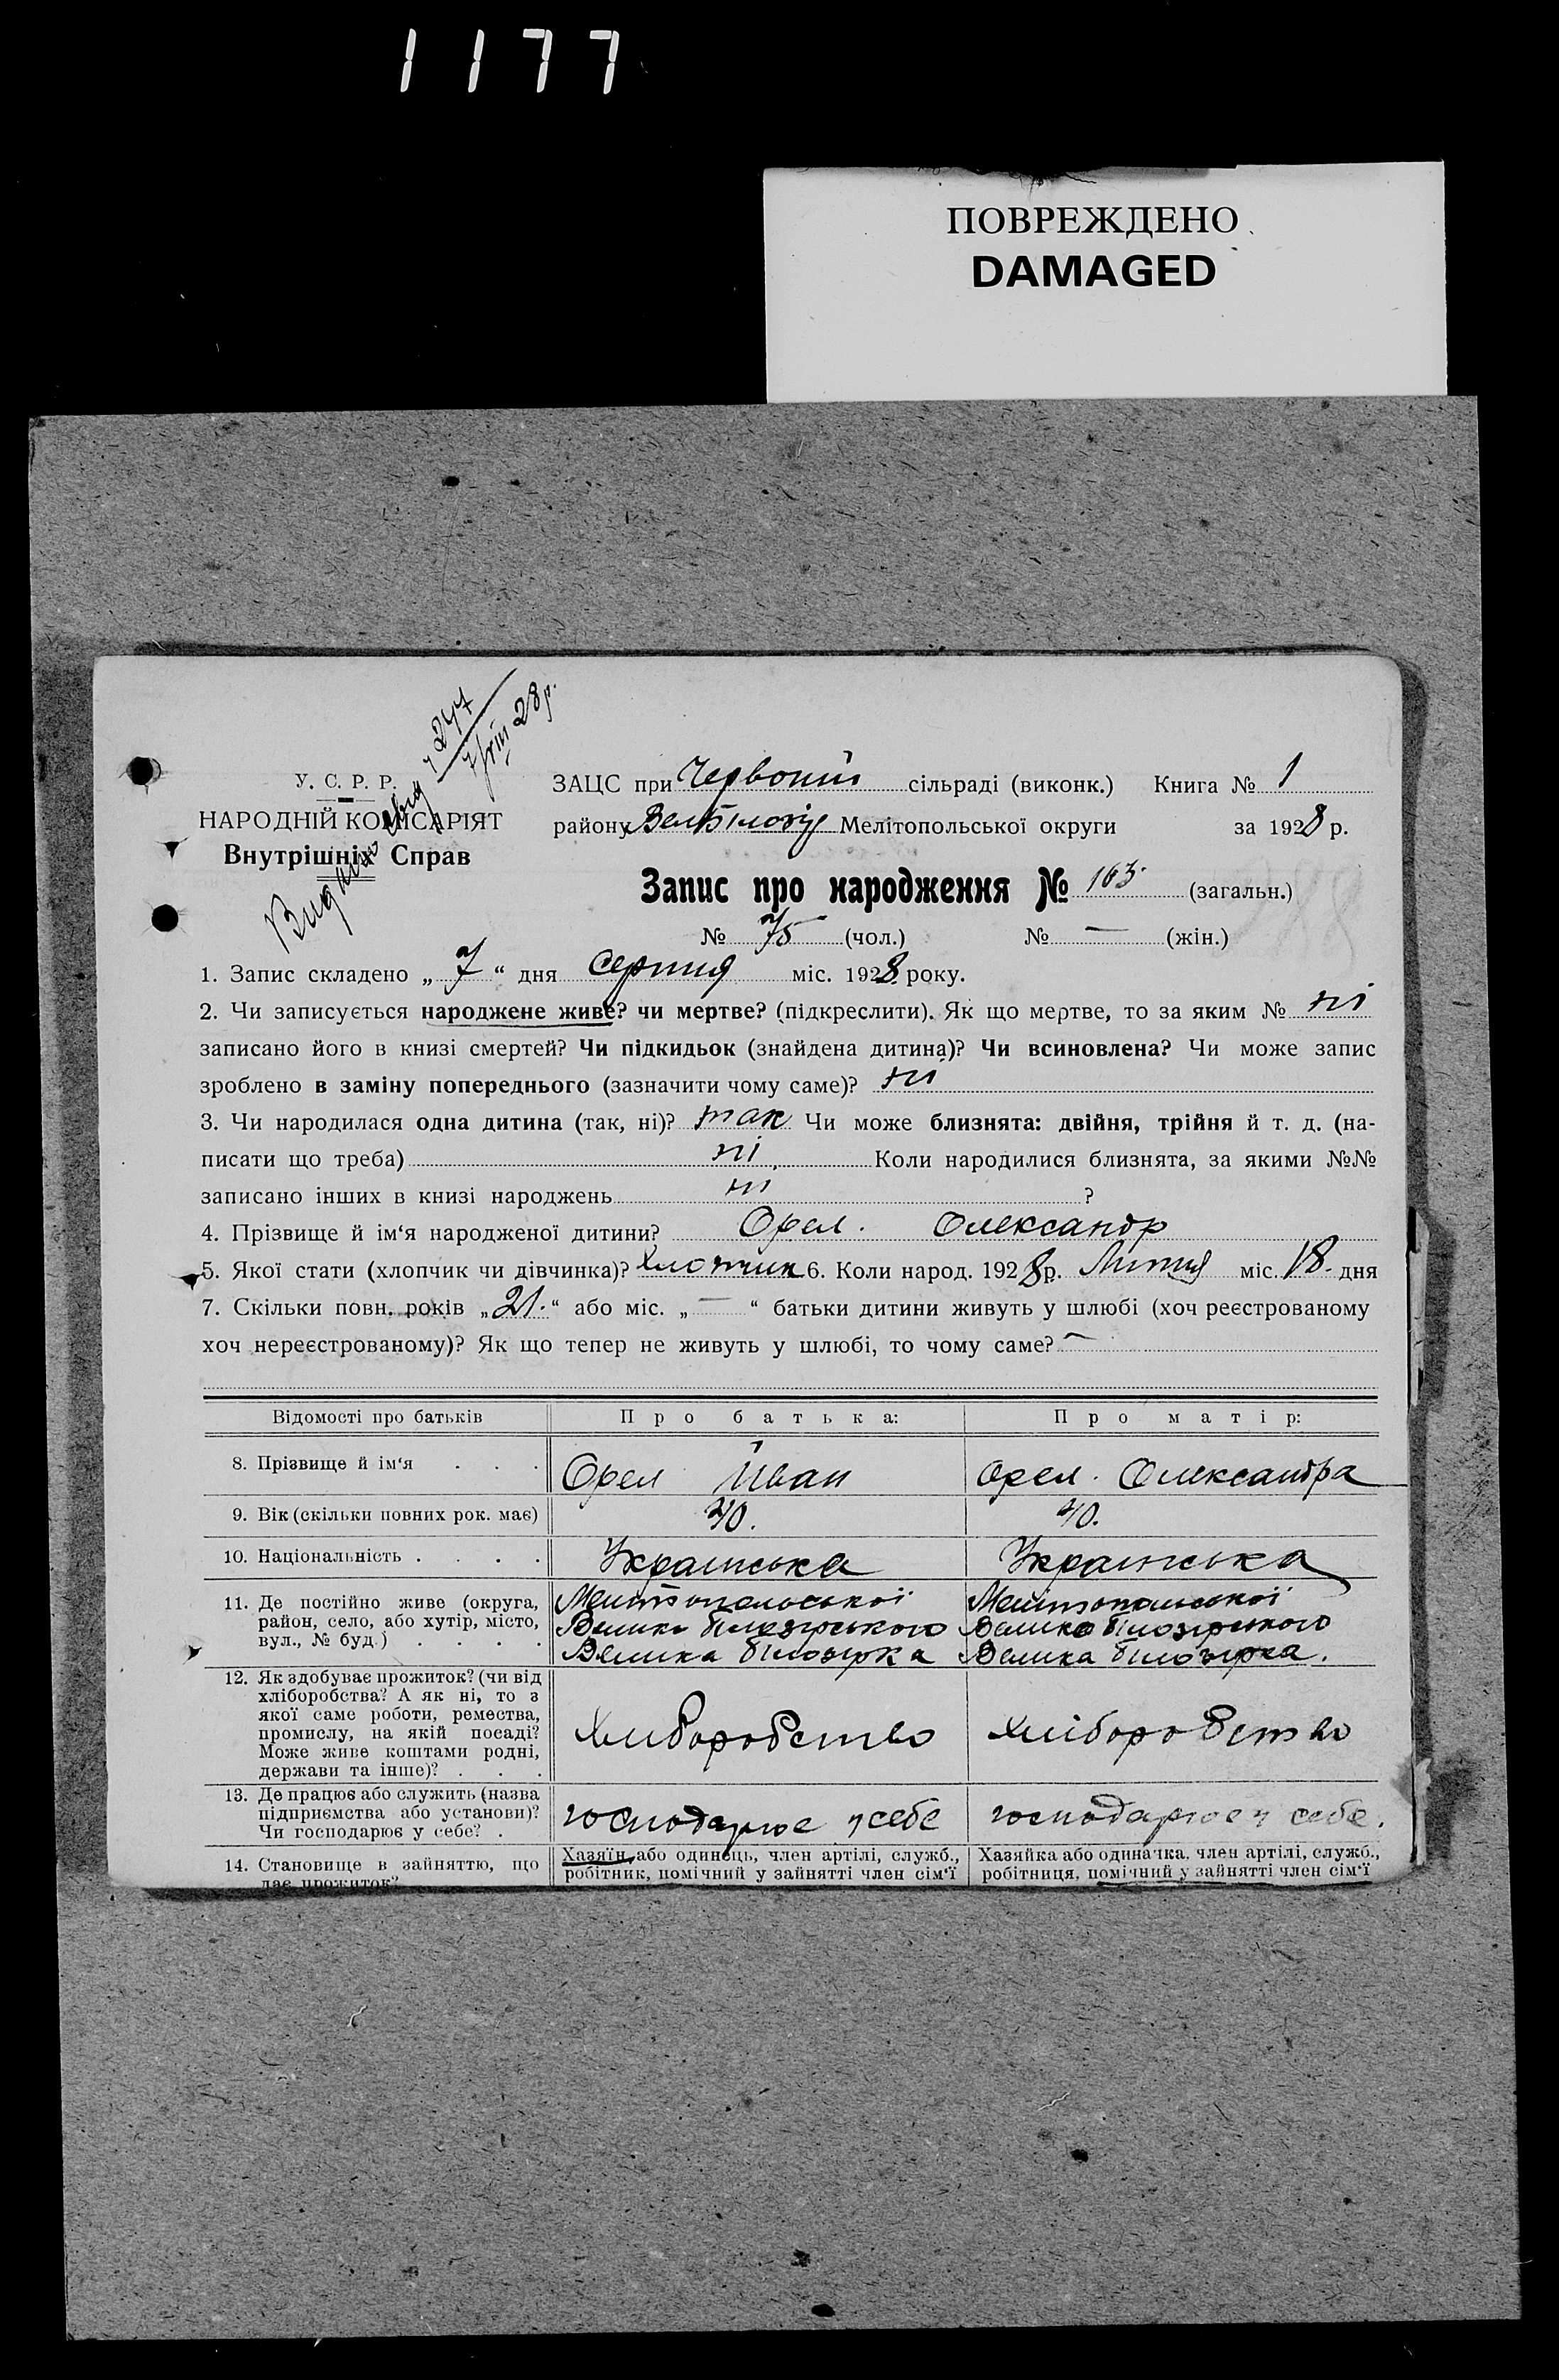 1177
ПОВРЕЖДЕНО
DAMAGED
247
7/VIII 28 р.
У. С. Р. Р.
НАРОДНІЙ КОМІСАРІЯТ
Внутрішніх Справ
ЗАЦС при Червоній сільраді (виконк.) Книга № 1
району Мелітопольської округи за 1928 р.
Запис про народження № 163 (загальн.)
№ 75 (чол.) № — (жін.)
1. Запис складено „ 7 “ дня серпня міс. 1928 року.
2. Чи записується народжене живе? чи мертве? (підкреслити). Як що мертве, то за яким № ні
записано його в книзі смертей? Чи підкидьок (знайдена дитина)? Чи всиновлена? Чи може запис
зроблено в заміну попереднього (зазначити чому саме)? ні
3. Чи народилася одна дитина (так, ні)? так Чи може близнята: двійня, трійня й т. д. (на-
писати що треба) ні Коли народилися близнята, за якими №№
записано інших в книзі народжень ні ?
4. Прізвище й ім‘я народженої дитини? Орел. Олександр
5. Якої стати (хлопчик чи дівчинка)? хлопчик 6. Коли народ. 1928 р. Липня міс. 18. дня
7. Скільки повн. років „ 21. “ або міс. „ — “ батьки дитини живуть у шлюбі (хоч реєстрованому
хоч нереєстрованому)? Як що тепер не живуть у шлюбі, то чому саме? —
Відомості про батьків Про батька: Про матір:
8. Прізвище й ім‘я . . . Орел Йван Орел. Олександра
9. Вік (скільки повних рок. має) 40. 40.
10. Національність . . . . Українська Українська
11. Де постійно живе (округа, Мелітопольської Мелітопольської
район, село, або хутір, місто, Велико білозірського Велико білозірського
вул., № буд.) . . . . Велика білозірка Велика білозірка.
12. Як здобуває прожиток? (чи від
хліборобства? А як ні, то з
якої саме роботи, ремества,
промислу, на якій посаді? хліборобство хліборобство
Може живе коштами родні,
держави та інше)? . . .
13. Де працює або служить (назва
підприємства або установи)? господарює у себе господарює у себе.
Чи господарює у себе? .
14. Становище в зайняттю, що Хазяїн, або одинець, член артілі, служб., Хазяйка або одиначка, член артілі, служб.,
дає прожиток? робітник, помічний у зайнятті член сім‘ї робітниця, помічний у зайнятті член сім‘ї